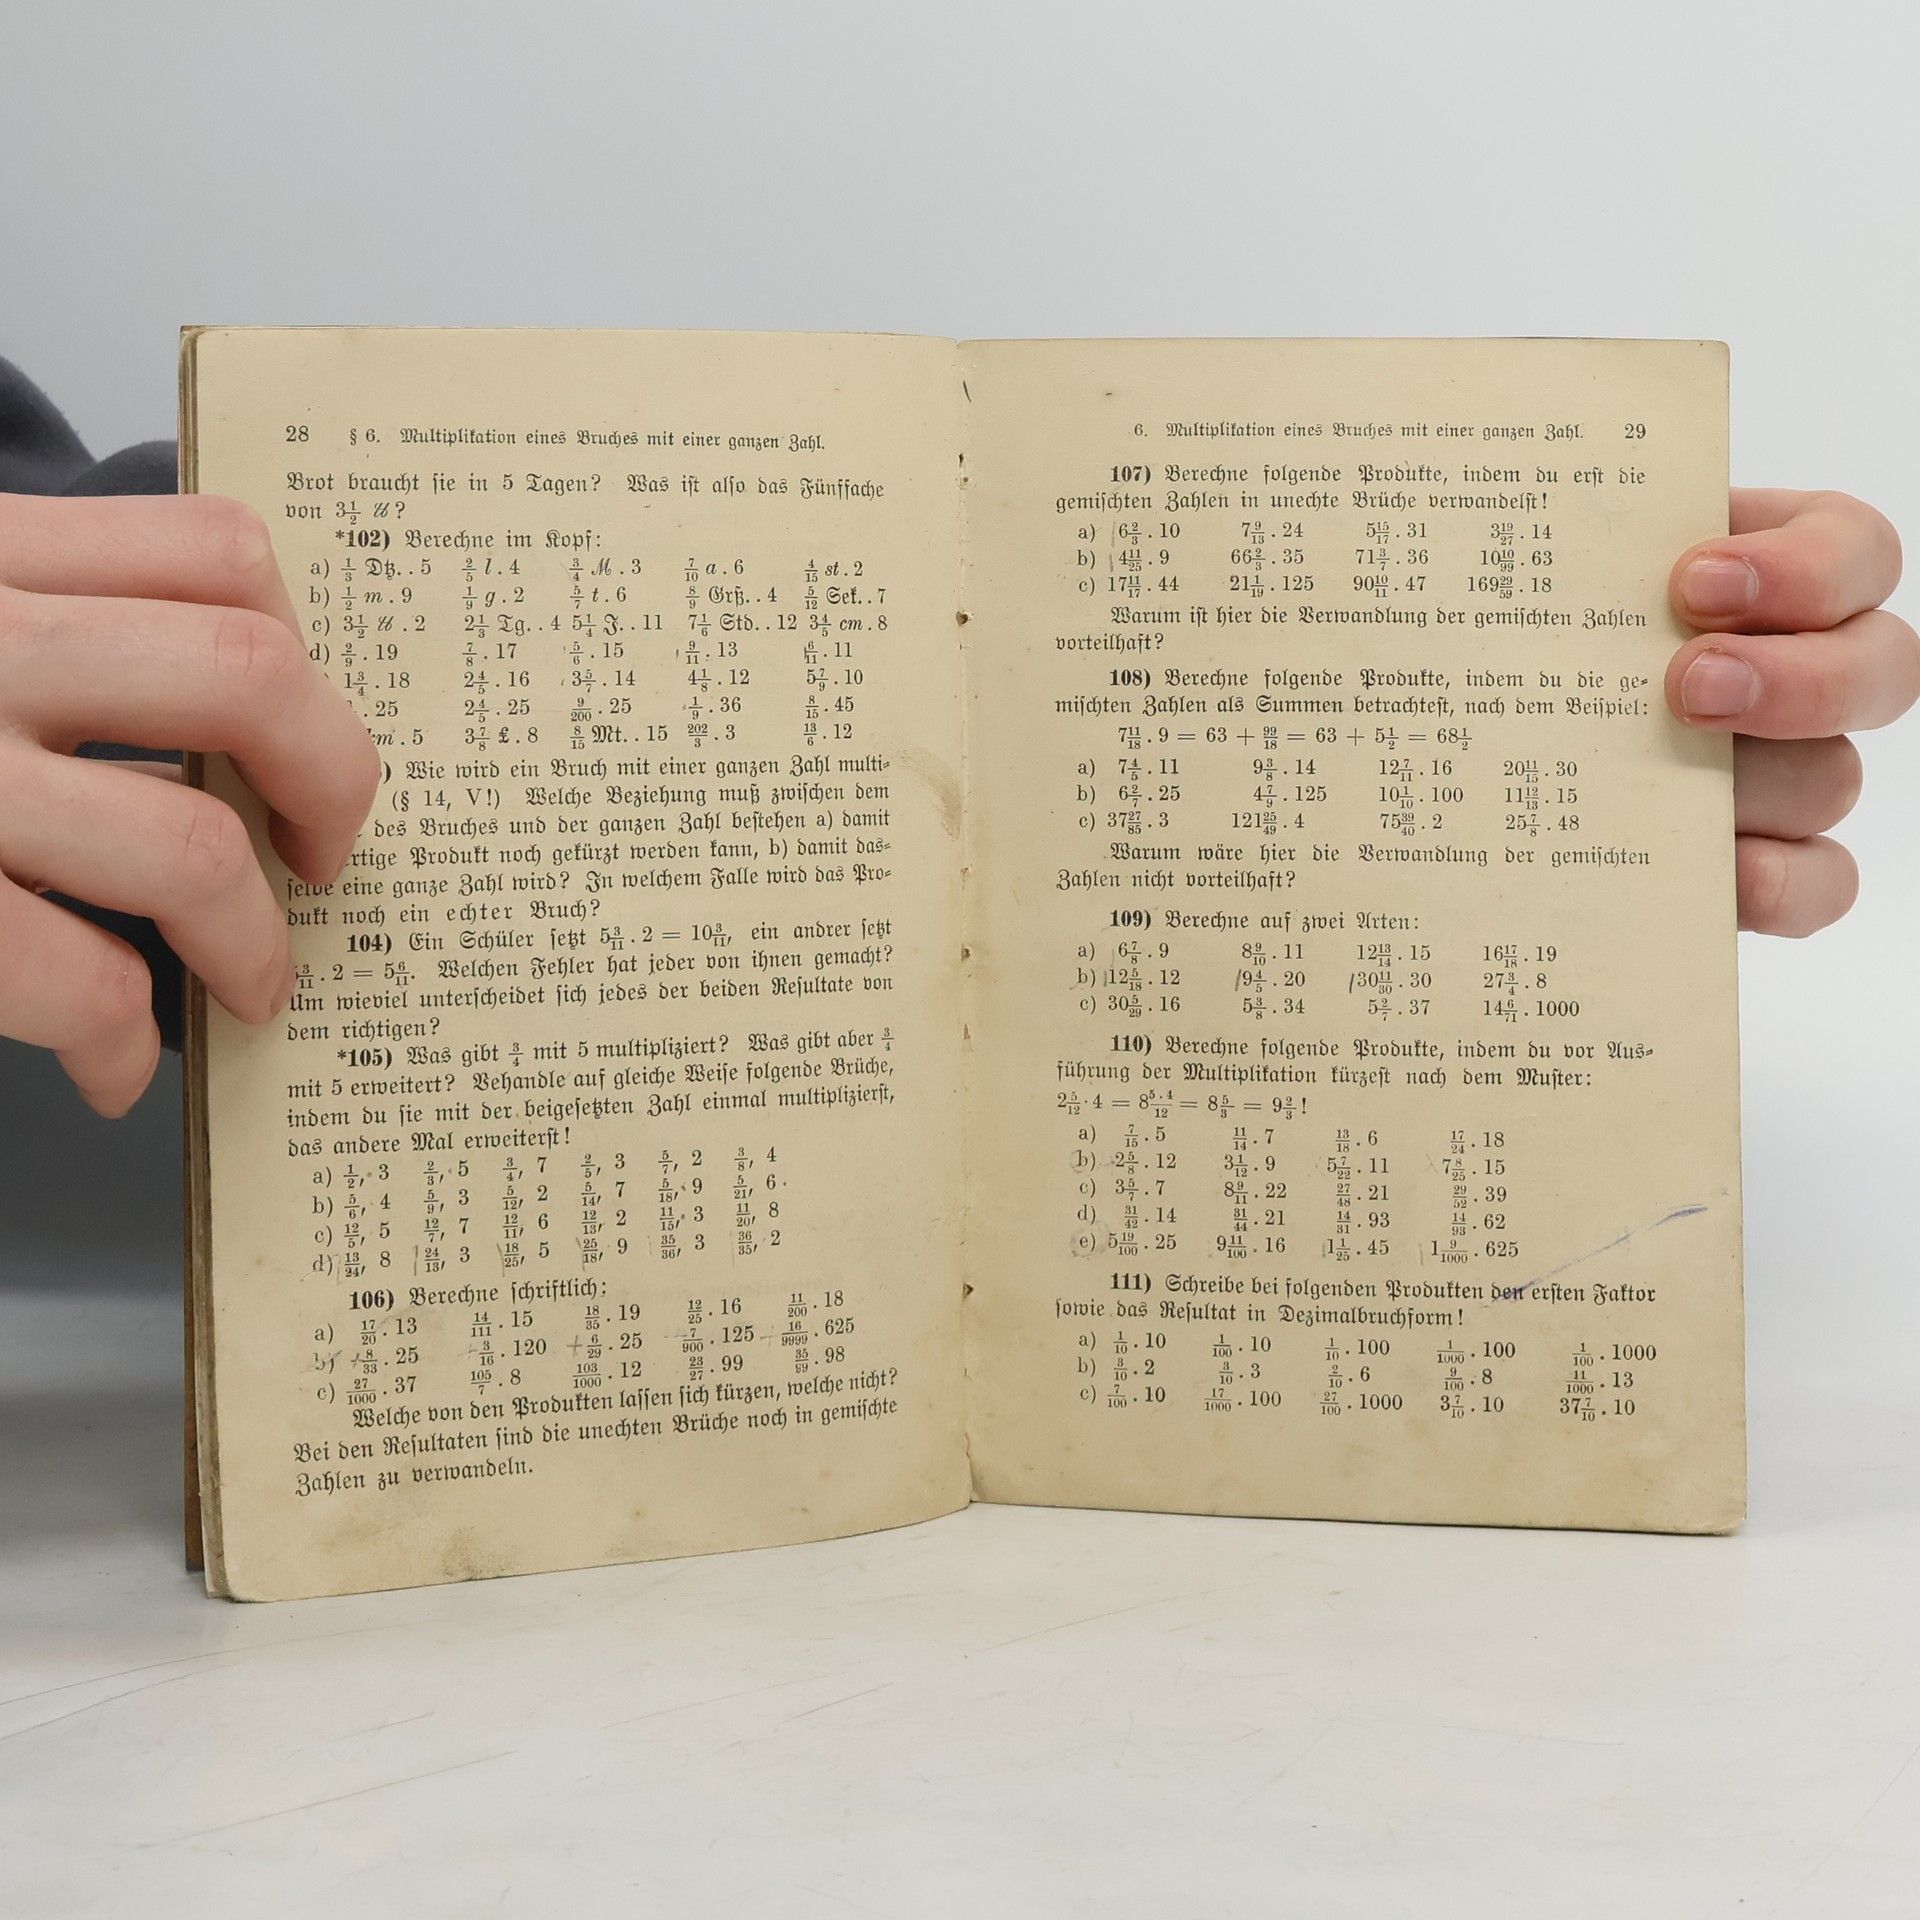 28 § 6. Multiplikation eines Bruches mit einer ganzen Zahl.
Brot braucht sie in 5 Tagen? Was ist also das Fünffache
von 3 1/2 ℔?
*102) Berechne im Kopf:
a) 1/3 Dtz. . 5 2/5 l . 4 3/4 M . 3 7/10 a . 6 4/15 st . 2
b) 1/2 m . 9 1/9 g . 2 5/7 t . 6 8/9 Grß. . 4 5/12 Sek. . 7
c) 3 1/2 ℔ . 2 2 1/3 Tg. . 4 5 1/4 J. . 11 7 1/6 Std. . 12 3 4/5 cm . 8
d) 2/9 . 19 7/8 . 17 5/6 . 15 9/11 . 13 6/11 . 11
1 3/4 . 18 2 4/5 . 16 3 5/7 . 14 4 1/8 . 12 5 7/9 . 10
. 25 2 4/5 . 25 9/200 . 25 1/9 . 36 8/15 . 45
km . 5 3 7/8 £ . 8 8/15 Mt. . 15 202/3 . 3 13/6 . 12
) Wie wird ein Bruch mit einer ganzen Zahl multi-
(§ 14, V!) Welche Beziehung muß zwischen dem
des Bruches und der ganzen Zahl bestehen a) damit
rtige Produkt noch gekürzt werden kann, b) damit das-
selbe eine ganze Zahl wird? In welchem Falle wird das Pro-
dukt noch ein echter Bruch?
104) Ein Schüler setzt 5 3/11 . 2 = 10 3/11, ein andrer setzt
5 3/11 . 2 = 5 6/11. Welchen Fehler hat jeder von ihnen gemacht?
Um wieviel unterscheidet sich jedes der beiden Resultate von
dem richtigen?
*105) Was gibt 3/4 mit 5 multipliziert? Was gibt aber 3/4
mit 5 erweitert? Behandle auf gleiche Weise folgende Brüche,
indem du sie mit der beigesetzten Zahl einmal multiplizierst,
das andere Mal erweiterst!
a) 1/2, 3 2/3, 5 3/4, 7 2/5, 3 5/7, 2 3/8, 4
b) 5/6, 4 5/9, 3 5/12, 2 5/14, 7 5/18, 9 5/21, 6
c) 12/5, 5 12/7, 7 12/11, 6 12/13, 2 11/15, 3 11/20, 8
d) 13/24, 8 24/13, 3 18/25, 5 25/18, 9 35/36, 3 36/35, 2
106) Berechne schriftlich:
a) 17/20 . 13 14/111 . 15 18/35 . 19 12/25 . 16 11/200 . 18
b) 8/33 . 25 3/16 . 120 6/29 . 25 7/900 . 125 16/9999 . 625
c) 27/1000 . 37 105/7 . 8 103/1000 . 12 23/27 . 99 35/99 . 98
Welche von den Produkten lassen sich kürzen, welche nicht?
Bei den Resultaten sind die unechten Brüche noch in gemischte
Zahlen zu verwandeln.
6. Multiplikation eines Bruches mit einer ganzen Zahl. 29
107) Berechne folgende Produkte, indem du erst die
gemischten Zahlen in unechte Brüche verwandelst!
a) 6 2/3 . 10 7 9/13 . 24 5 15/17 . 31 3 19/27 . 14
b) 4 11/25 . 9 66 2/3 . 35 71 3/7 . 36 10 10/99 . 63
c) 17 11/17 . 44 21 1/19 . 125 90 10/11 . 47 169 29/59 . 18
Warum ist hier die Verwandlung der gemischten Zahlen
vorteilhaft?
108) Berechne folgende Produkte, indem du die ge-
mischten Zahlen als Summen betrachtest, nach dem Beispiel:
7 11/18 . 9 = 63 + 99/18 = 63 + 5 1/2 = 68 1/2
a) 7 4/5 . 11 9 3/8 . 14 12 7/11 . 16 20 11/15 . 30
b) 6 2/7 . 25 4 7/9 . 125 10 1/10 . 100 11 12/13 . 15
c) 37 27/85 . 3 121 25/49 . 4 75 39/40 . 2 25 7/8 . 48
Warum wäre hier die Verwandlung der gemischten
Zahlen nicht vorteilhaft?
109) Berechne auf zwei Arten:
a) 6 7/8 . 9 8 9/10 . 11 12 13/14 . 15 16 17/18 . 19
b) 12 5/18 . 12 9 4/5 . 20 30 11/30 . 30 27 3/4 . 8
c) 30 5/29 . 16 5 3/8 . 34 5 2/7 . 37 14 6/71 . 1000
110) Berechne folgende Produkte, indem du vor Aus-
führung der Multiplikation kürzest nach dem Muster:
2 5/12 . 4 = 8 5.4/12 = 8 5/3 = 9 2/3!
a) 7/15 . 5 11/14 . 7 13/18 . 6 17/24 . 18
b) 2 5/8 . 12 3 1/12 . 9 5 7/22 . 11 7 8/25 . 15
c) 3 5/7 . 7 8 9/11 . 22 27/48 . 21 29/52 . 39
d) 31/42 . 14 31/44 . 21 14/31 . 93 14/93 . 62
e) 5 19/100 . 25 9 11/100 . 16 1 1/25 . 45 1 9/1000 . 625
111) Schreibe bei folgenden Produkten den ersten Faktor
sowie das Resultat in Dezimalbruchform!
a) 1/10 . 10 1/100 . 10 1/10 . 100 1/1000 . 100 1/100 . 1000
b) 3/10 . 2 3/10 . 3 2/10 . 6 9/100 . 8 11/1000 . 13
c) 7/100 . 10 17/1000 . 100 27/100 . 1000 3 7/10 . 10 37 7/10 . 10